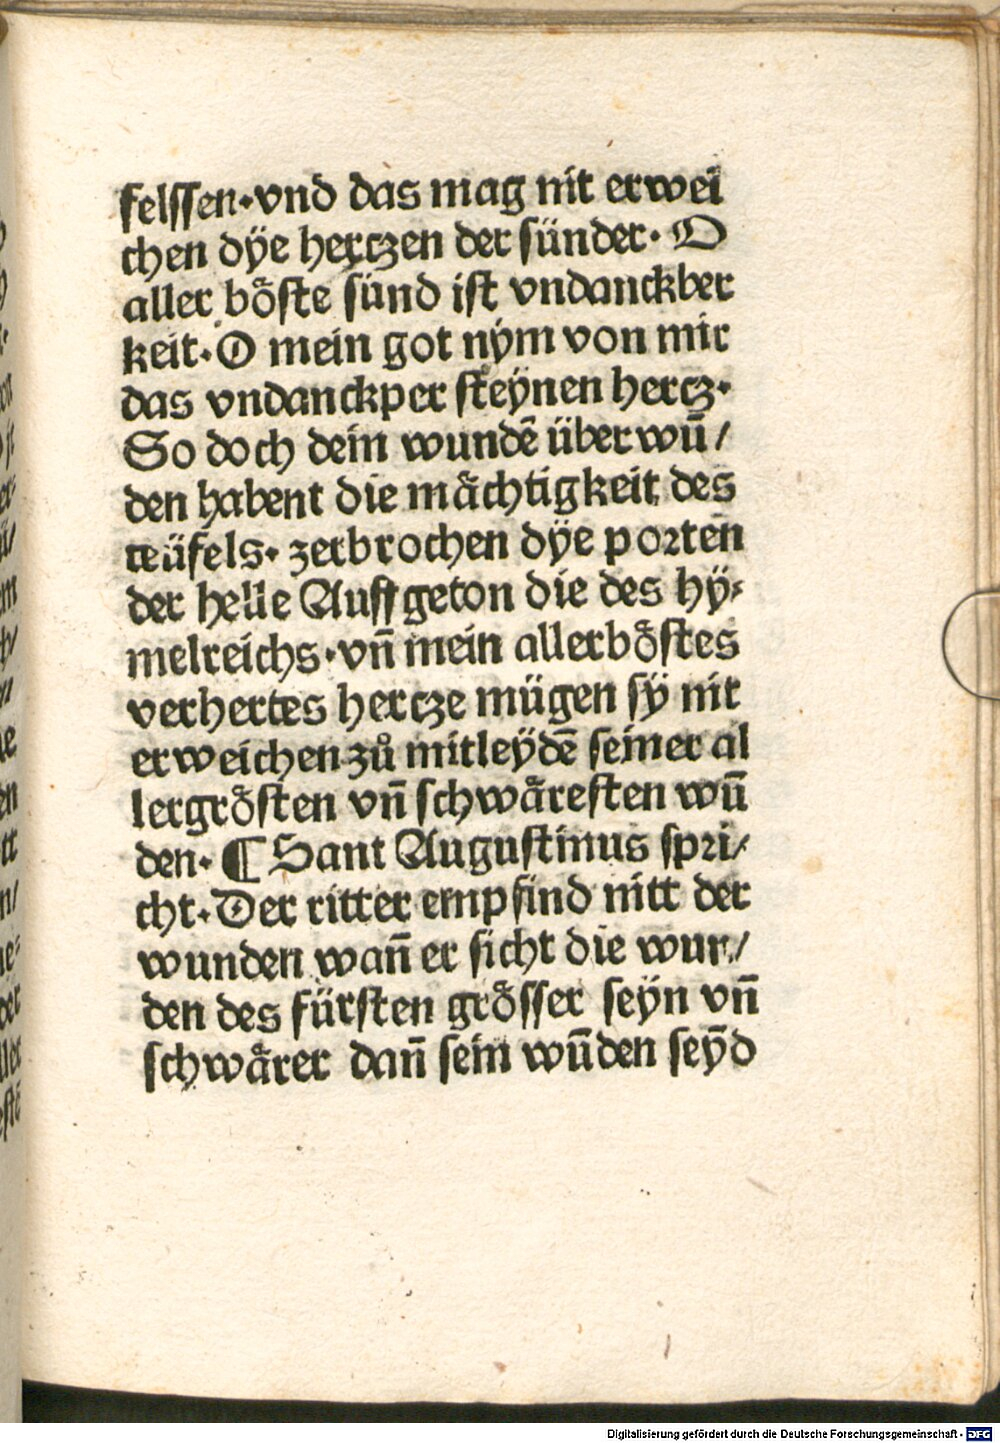 felſſen·vnd das mag nit erwei
chen dÿe herczen der ſünder· O
aller boͤſte ſünd iſt vndanckber
keit·O mein got nÿm von mir
das vndanckper ſteÿnen hercz·
So doch dein wundē überwū/
den habent die maͤchtigkeit des
teüfels· zerbrochen dÿe porten
der helle Auffgeton die des hÿ⸗
melreichs·vñ mein allerboͤſtes
verhertes hercze mügen ſÿ nit
erweichen zů mitleÿdē ſeiner al
lergroͤſten vñ ſchwaͤreſten wū
den· ¶ Sant Auguſtinus ſpri/
cht·Der ritter empfind nitt der
wunden wañ er ſicht die wun/
den des fürſten groͤſſer ſeÿn vñ
ſchwaͤrer dañ ſein wūden ſeÿd
Digitalisierung gefördert durch die Deutsche Forschungsgemeinschaft - DFG